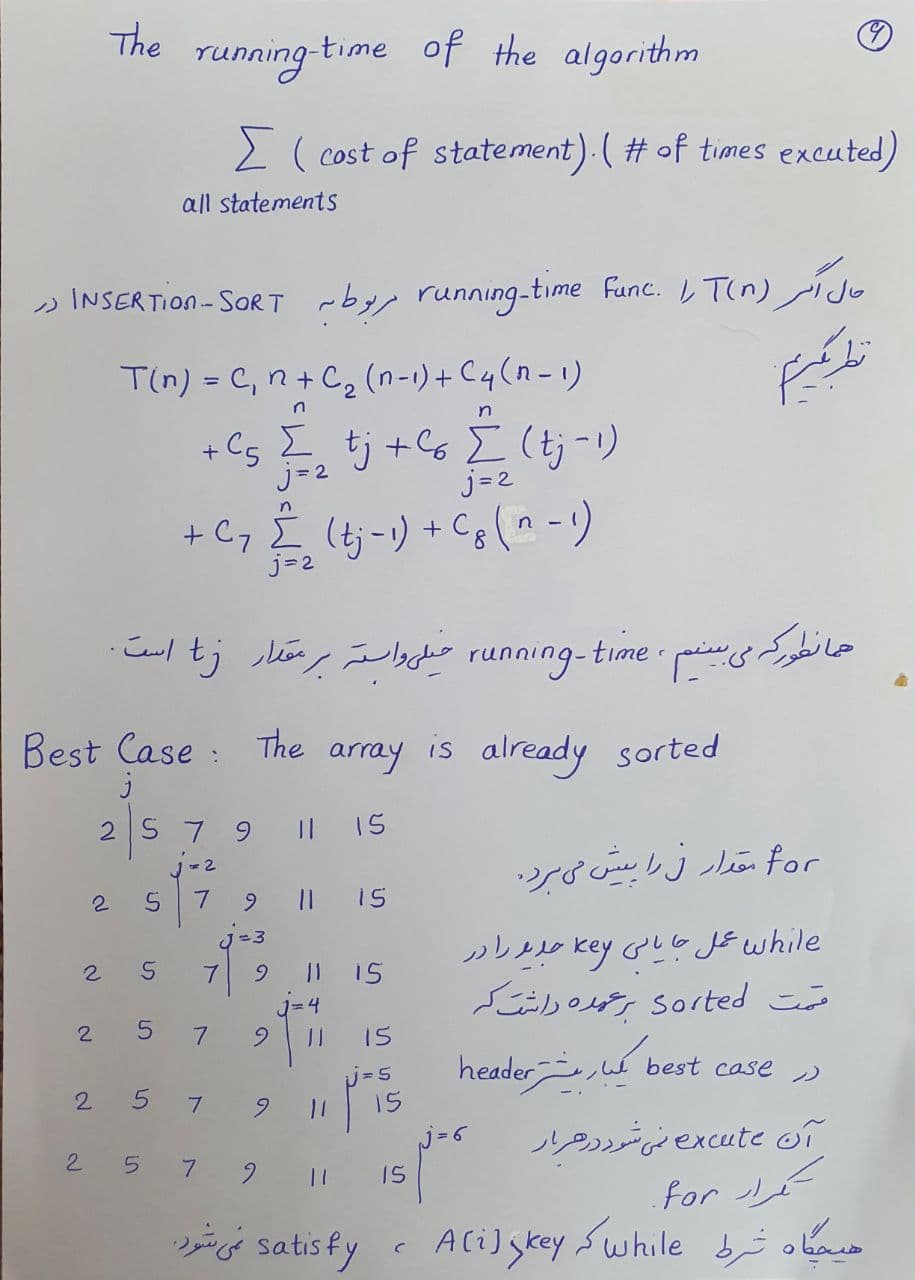 The running-time of the algorithm
۹
∑ (cost of statement).(# of times excuted)
all statements
حال اگر T(n) را running-time Func. مربوط به INSERTION-SORT در
نظر بگیریم
T(n) = C₁n + C₂(n-1) + C₄(n-1)
+ C₅ ∑_{j=2}^{n} tj + C₆ ∑_{j=2}^{n} (tj-1)
+ C₇ ∑_{j=2}^{n} (tj-1) + C₈(n-1)
همانطور که می بینیم، running-time خیلی وابسته بر مقدار tj است.
Best Case : The array is already sorted
j
2 | 5 7 9 11 15
j=2
2 5 | 7 9 11 15
j=3
2 5 7 | 9 11 15
j=4
2 5 7 9 | 11 15
j=5
2 5 7 9 11 | 15
j=6
2 5 7 9 11 15 |
for مقدار j را پیش می برد.
while عمل جایابی key جدید را در
قسمت sorted بر عهده داشت که
در best case یکبار بیشتر header
آن excute نمی شود در هر بار
تکرار for.
هیچگاه شرط while که A[i]>key، satisfy نمی شود.